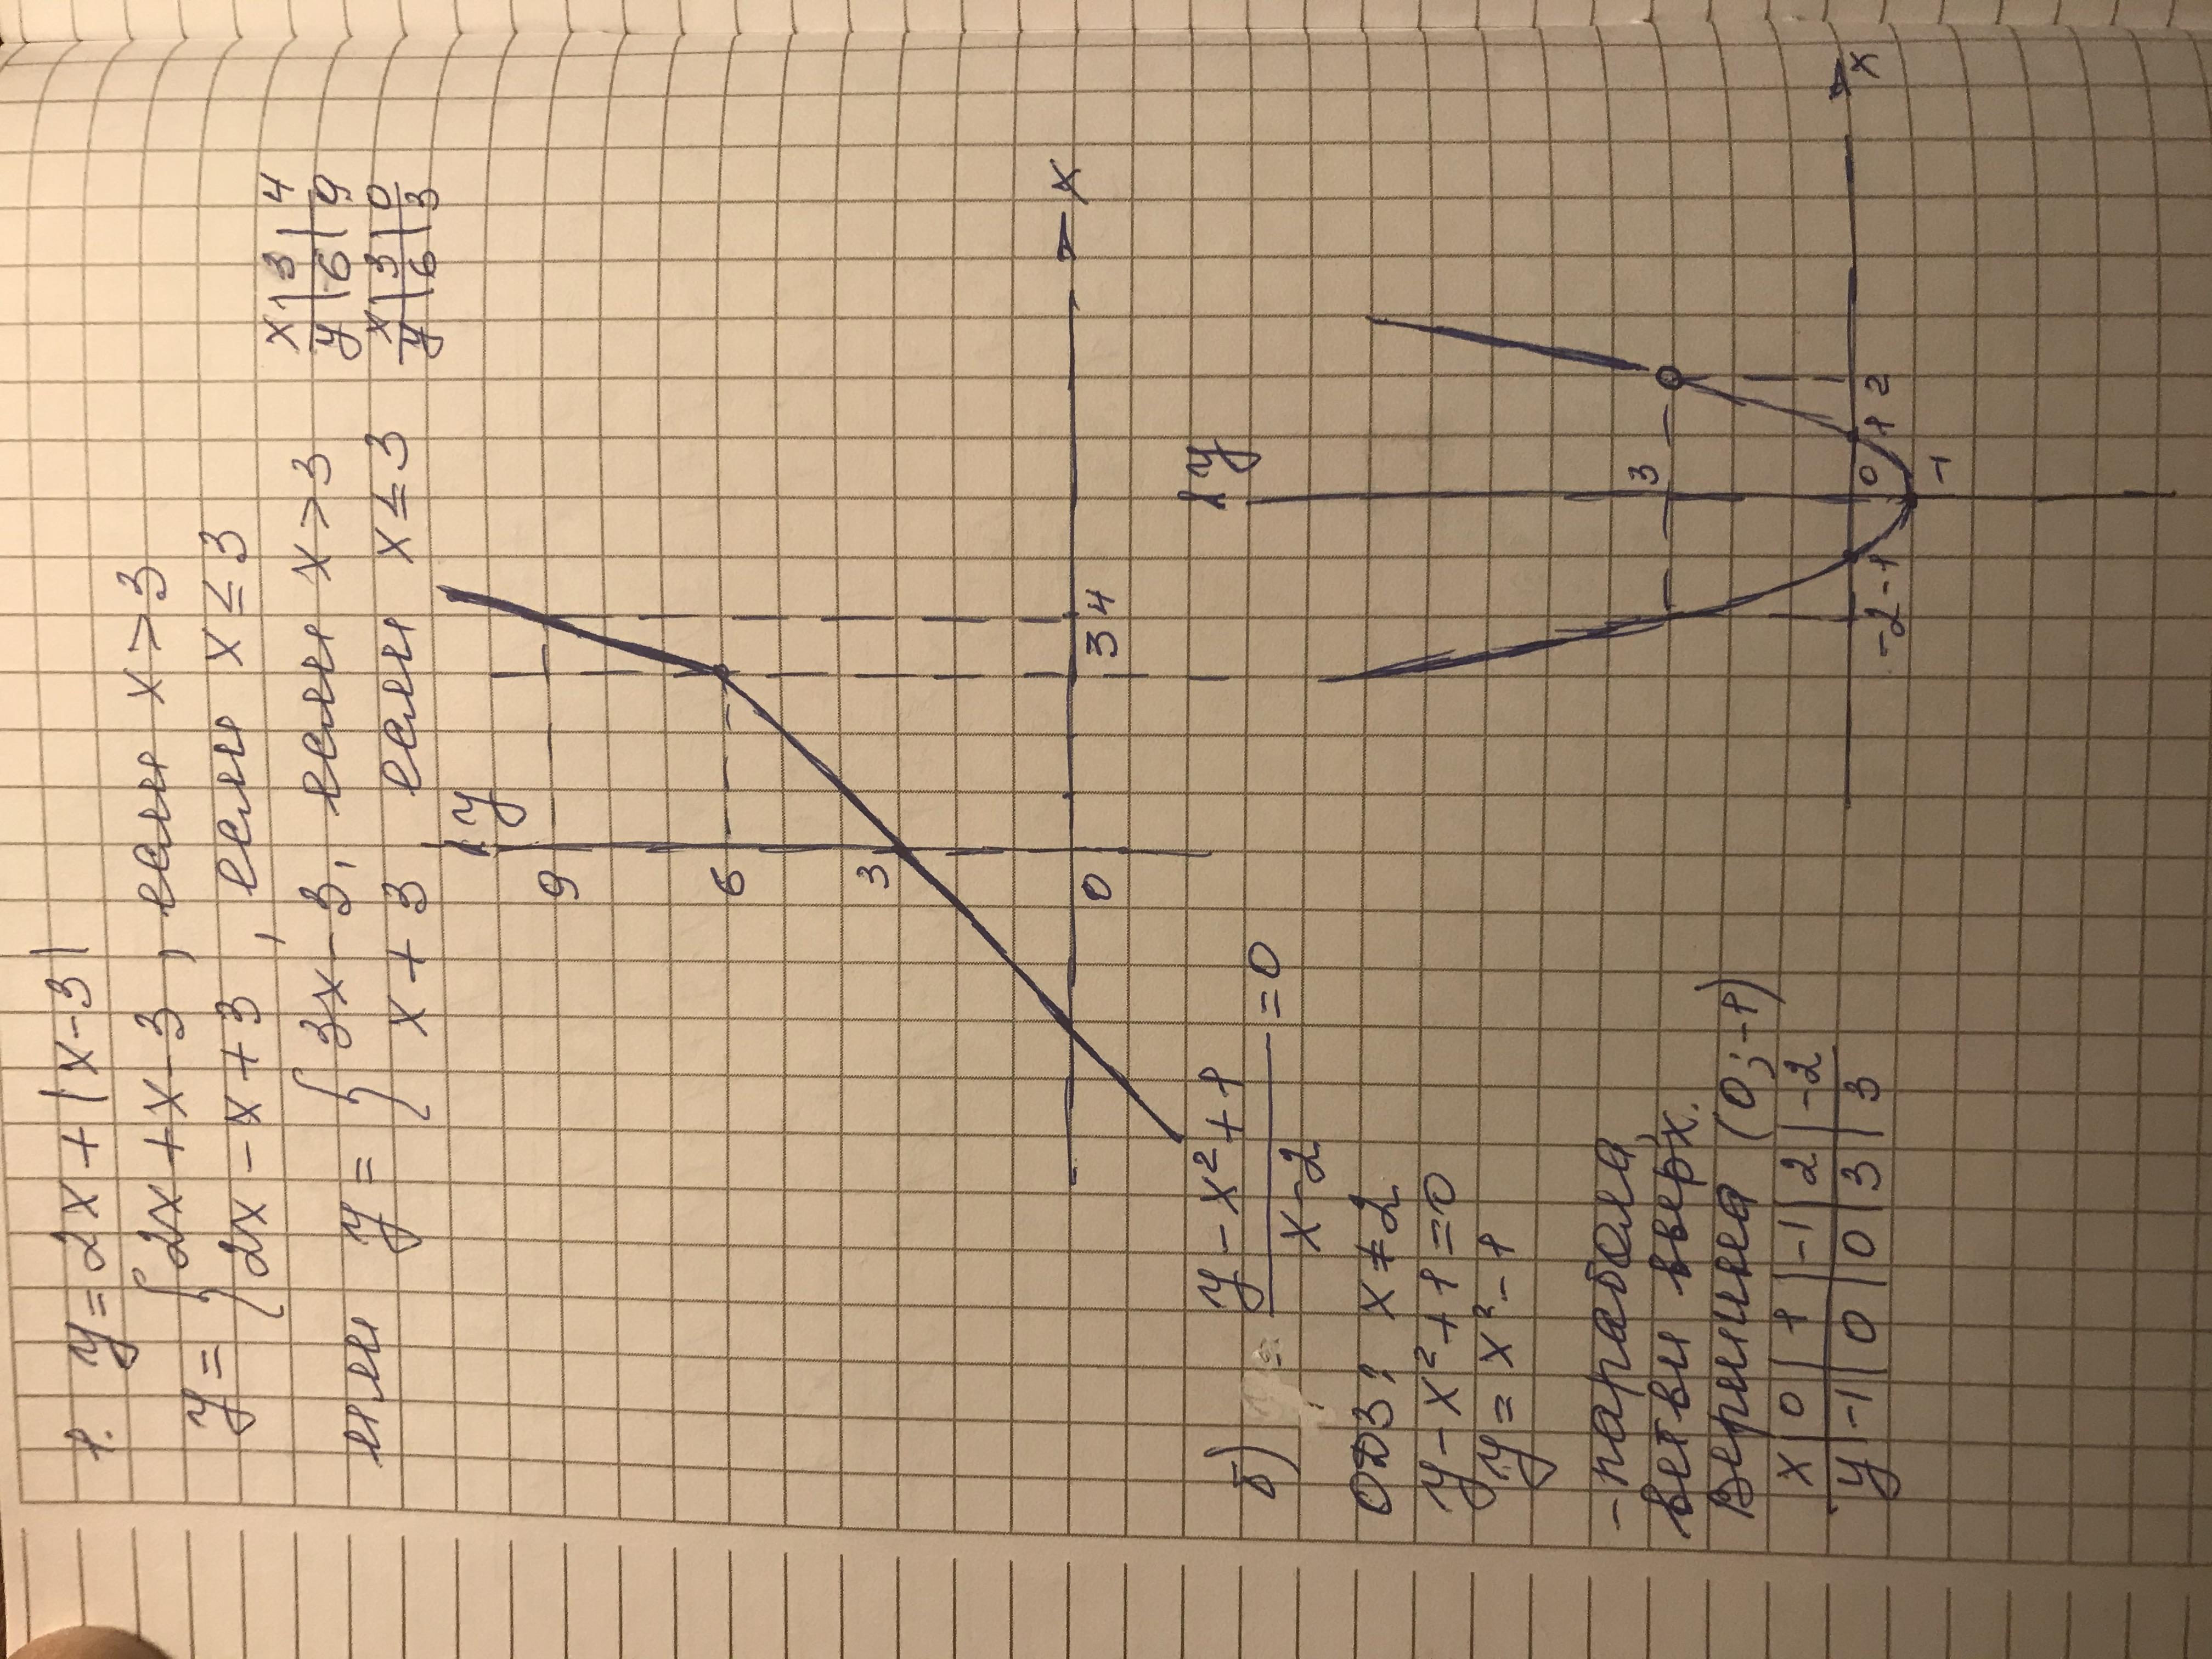 1. y = 2x + |x-3|
y = { 2x + x - 3, если x > 3
2x - x + 3, если x ≤ 3
или y = { 3x - 3, если x > 3
x + 3 если x ≤ 3
x | 3 | 4
y | 6 | 9
x | 3 | 0
y | 6 | 3
y
9
6
3
0
3 4
x
б) y - x² + 1 / x - 2 = 0
ОДЗ: x ≠ 2
y - x² + 1 = 0
y = x² - 1
- парабола,
ветви вверх.
Вершина (0; -1)
x | 0 | 1 | -1 | 2 | -2
y | -1 | 0 | 0 | 3 | 3
y
3
-2 -1 0 1 2
x
-1